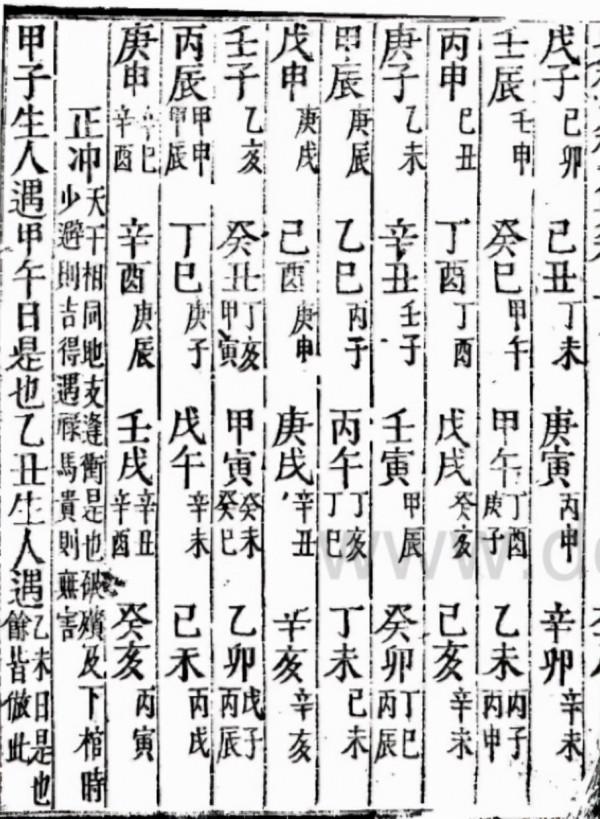 戊子 己卯 己丑 丁未 庚寅 丙申 辛卯 辛未
壬辰 壬申 癸巳 甲午 甲午 丁酉 庚子 乙未 丙子 丙申
丙申 己丑 丁酉 丁酉 戊戌 癸亥 己亥 辛未
庚子 乙未 辛丑 壬子 壬寅 甲辰 癸卯 丁巳 丙辰
甲辰 庚辰 乙巳 丙子 丙午 丁亥 丁巳 丁未 己未
戊申 庚戌 己酉 庚申 庚戌 辛丑 辛亥 辛亥
壬子 乙亥 癸丑 丁亥 甲寅 甲寅 癸未 癸巳 乙卯 戊子 丙辰
丙辰 甲申 甲辰 丁巳 庚子 戊午 辛未 己未 丙戌
庚申 辛巳 辛酉 辛酉 庚辰 壬戌 辛丑 辛酉 癸亥 丙寅
正冲 天干相同地支逢衝是也破殯及下棺時
少避則吉得遇祿馬貴則無害
甲子生人遇甲午日是也乙丑生人遇 乙未日是也
餘皆倣此
www.d